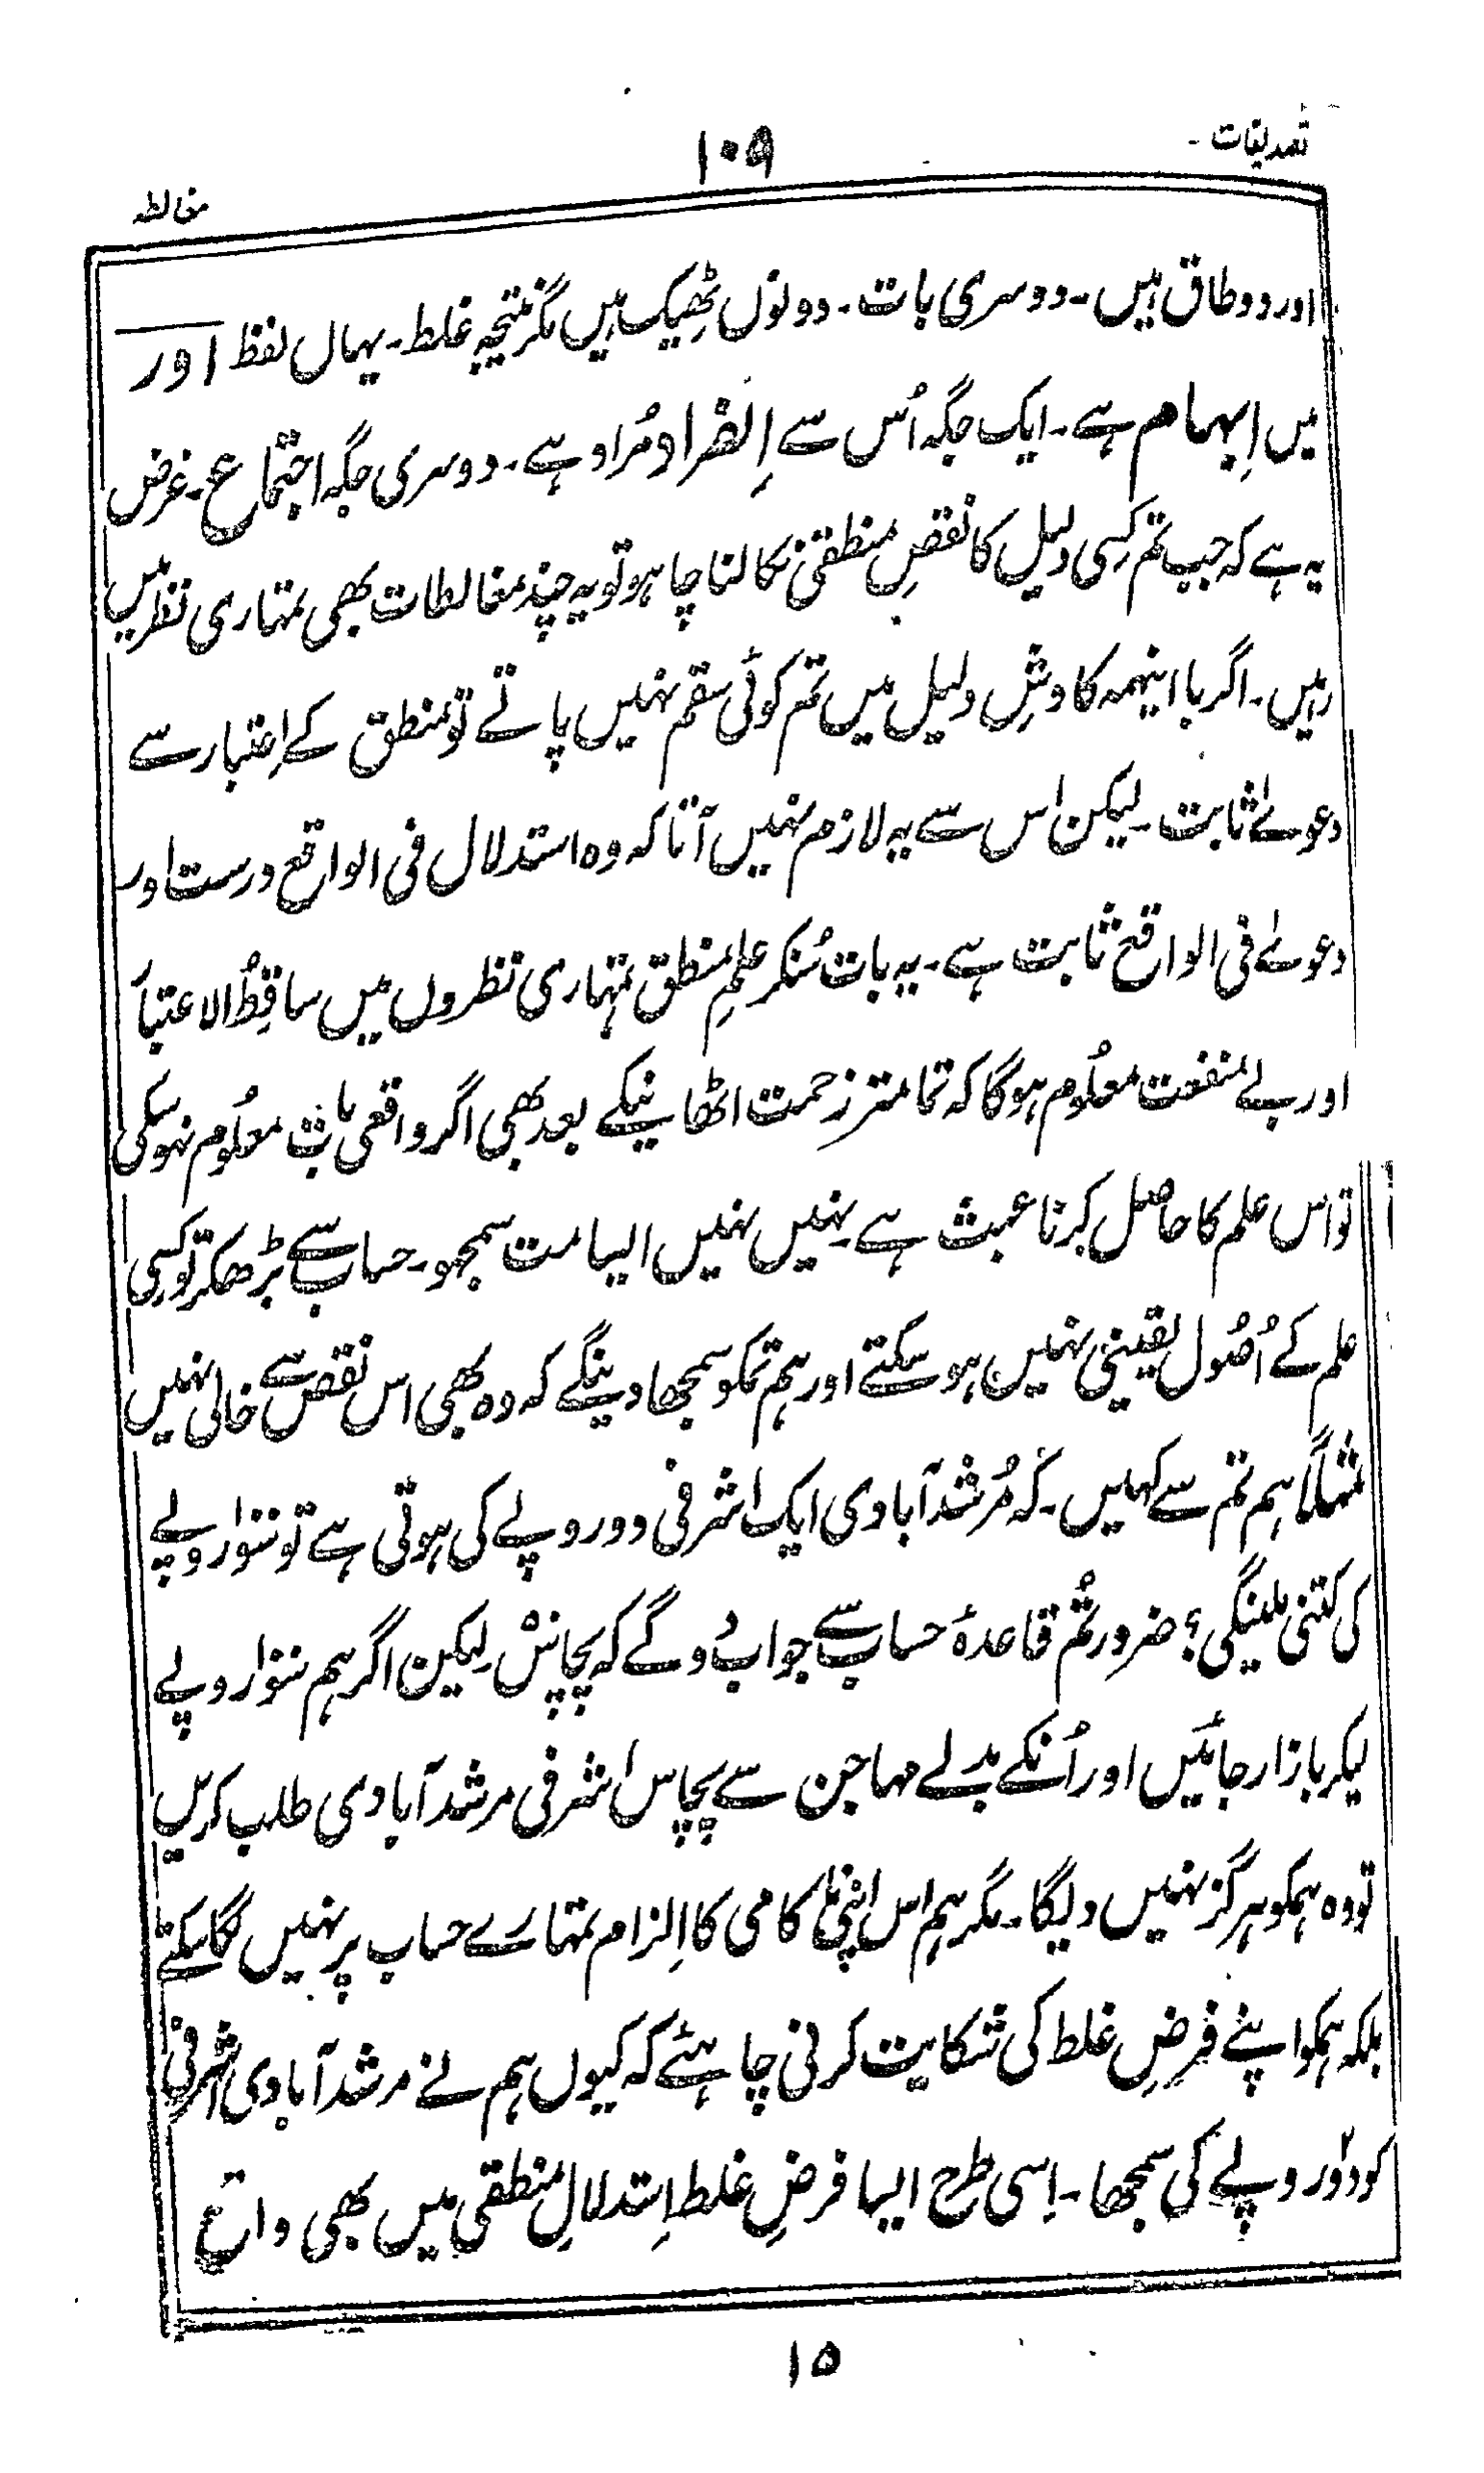 تصدیقات۔
۱۰۹
مغالطہ
اور دو طاق ہیں۔ دوسری بات۔ دونوں ٹھیک ہیں مگر نتیجہ غلط۔ یہاں لفظ اور
میں اِبہام ہے۔ ایک جگہ اُس سے اِنفراد مُراد ہے۔ دوسری جگہ اجتماع۔ غرض
یہ ہے کہ جب تم کسی دلیل کا نقصِ منطقی نکالنا چاہو تو یہ چند مغالطات بھی تمہاری نظر میں
رہیں۔ اگر با اینہمہ کاوشِ دلیل میں تم کوئی سقم نہیں پاتے تو منطق کے اِعتبار سے
دعوےٰ ثابت۔ لیکن اس سے یہ لازم نہیں آتا کہ وہ استدلال فی الواقع درست اور
دعوےٰ فی الواقع ثابت ہے۔ یہ بات سُنکر علمِ منطق تمہاری نظروں میں ساقِطُ الاعتبار
اور بے منفعت معلُوم ہوگا کہ تمامتر زحمت اٹھانیکے بعد بھی اگر واقعی بات معلُوم نہوسکی
تو اس علم کا حاصل کرنا عبث ہے۔ نہیں نہیں ایسا مت سمجھو۔ حساب سے بڑھکر تو کسِی
علم کے اُصُول یقینی نہیں ہو سکتے اور ہم تمکو سمجھا دینگے کہ وہ بھی اس نقص سے خالی نہیں
مثلاً ہم تم سے کہیں۔ کہ مُرشدآبادی ایک اشرفی دو روپے کی ہوتی ہے تو ننوا روپے
کی کتنی ملینگی؟ ضرور تُم قاعدۂ حساب سے جواب دو گے کہ پچاس۔ لیکن اگر ہم ننوا روپے
لیکر بازار جائیں اور اُنکے بدلے مہاجن سے پچاس اشرفی مرشدآبادی طلب کریں
تو وہ ہمکو ہرگز نہیں دیگا۔ مگر ہم اس اپنی ناکامی کا اِلزام تمہارے حساب پر نہیں لگا سکتے
بلکہ ہمکو اپنے فرضِ غلط کی شکایت کرنی چاہئے کہ کیوں ہم نے مرشدآبادی اشرفی
کو دو روپے کی سمجھا۔ اِسی طرح ایسا فرضِ غلط اِستدلالِ منطقی میں بھی واقع
۱۵